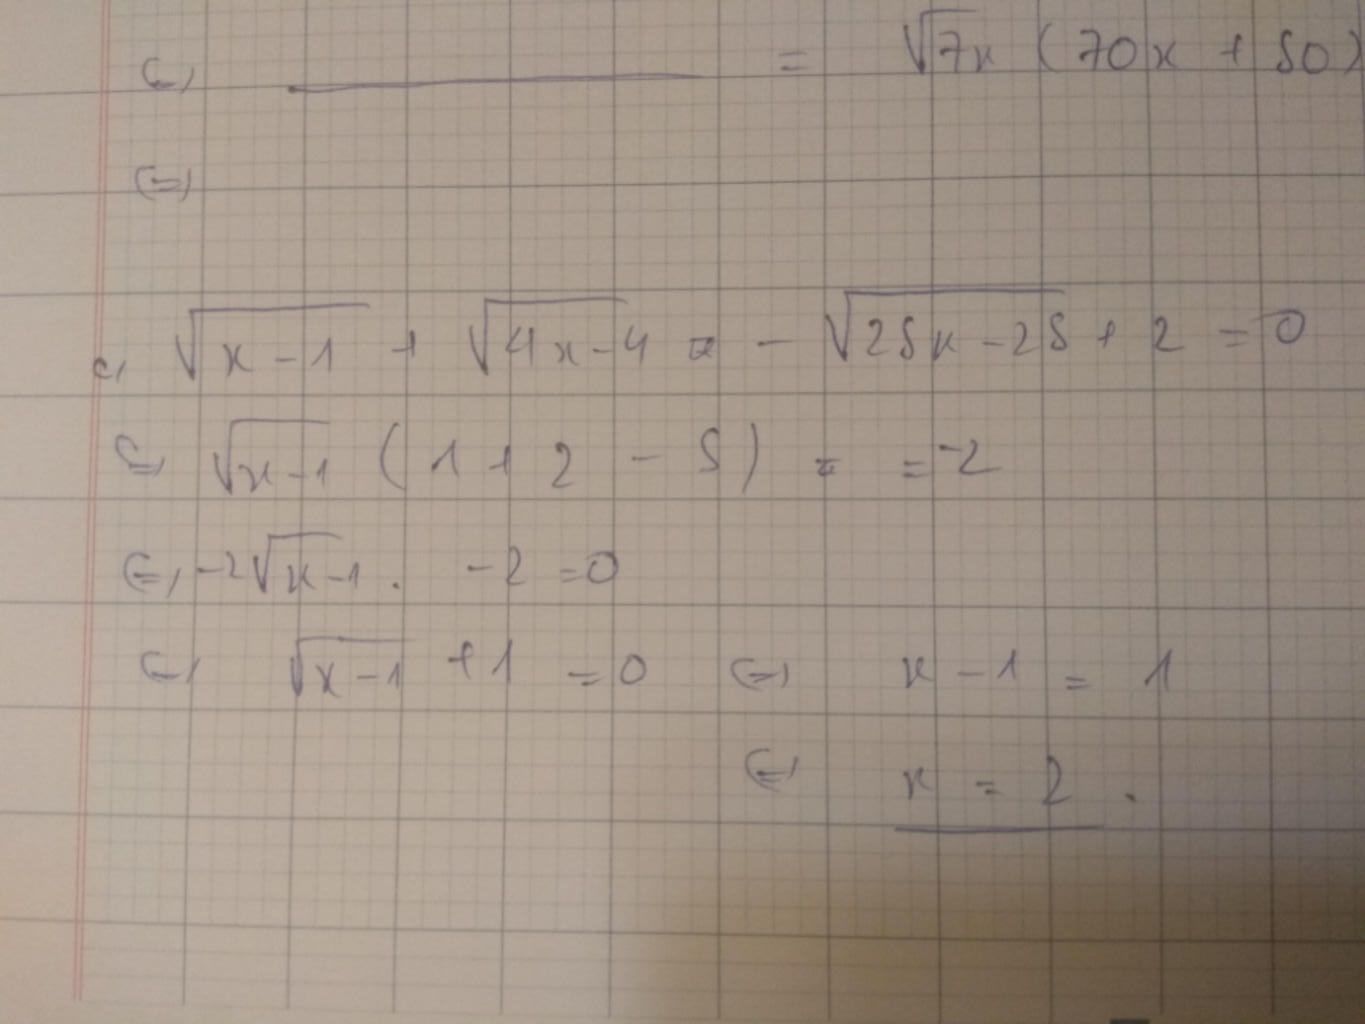 ⇔ ________ = √7x (70x + 50)
⇔
c, √x-1 + √4x-4 = - √25x-25 + 2 = 0
⇔ √x-1 (1 + 2 - 5) = = -2
⇔ -2√x-1 . -2 = 0
⇔ √x-1 + 1 = 0 ⇔ x - 1 = 1
⇔ x = 2 .